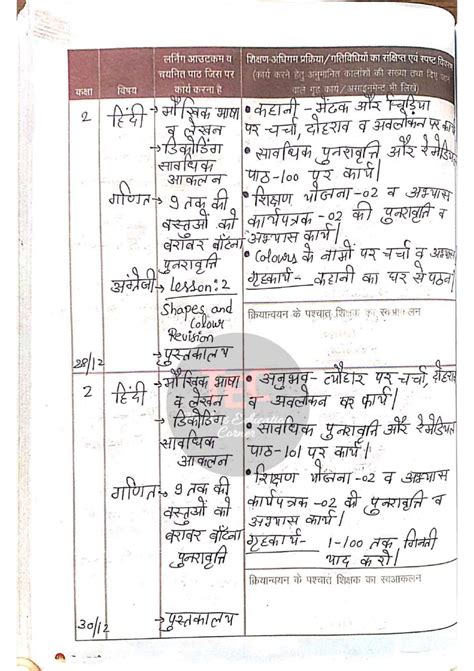 कक्षा
विषय
लर्निंग आउटकम व
चयनित पाठ जिस पर
कार्य करना है
शिक्षण-अधिगम प्रक्रिया/गतिविधियों का संक्षिप्त एवं स्पष्ट
(कार्य करने हेतु अनुमानित कालांशों की संख्या तथा दिए
वाले गृह कार्य/असाइनमेन्ट भी लिखें)
2
हिंदी
→ मौखिक भाषा
व लेखन
→ डिकोडिंग
सावधिक
आकलन
गणित
→ 9 तक की
वस्तुओं को
बराबर बाँटना
पुनरावृत्ति
अंग्रेजी
→ Lesson:2
Shapes and
Colour
Revision
→ पुस्तकालय
28/12
• कहानी - मेंढक और चिड़िया
पर चर्चा, दोहराव व अवलोकन पर कार्य।
• सावधिक पुनरावृत्ति और रेमेडियल
पाठ-100 पर कार्य।
• शिक्षण योजना-02 व अभ्यास
कार्यपत्रक-02 की पुनरावृत्ति व
अभ्यास कार्य।
• Colours के नामों पर चर्चा व
गृहकार्य- कहानी का घर से पठन।
क्रियान्वयन के पश्चात् शिक्षक का स्वआकलन
2
हिंदी
→ मौखिक भाषा
व लेखन
→ डिकोडिंग
सावधिक
आकलन
गणित
→ 9 तक की
वस्तुओं को
बराबर बाँटना
पुनरावृत्ति
→ पुस्तकालय
30/12
• अनुभव- त्यौहार पर चर्चा,
व अवलोकन पर कार्य।
• सावधिक पुनरावृत्ति और रेमेडियल
पाठ-101 पर कार्य।
• शिक्षण योजना-02 व अभ्यास
कार्यपत्रक-02 की पुनरावृत्ति व
अभ्यास कार्य।
गृहकार्य- 1-100 तक गिनती
याद करो।
क्रियान्वयन के पश्चात् शिक्षक का स्वआकलन
Education
Corner